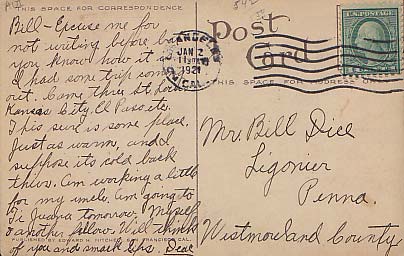 THIS SPACE FOR CORRESPONDENCE
Bill - Excuse me for
not writing before but
you know how it is.
I had some trip coming
out. Came thru St. Louis
Kansas City, El Paso, etc.
This sure is some place.
Just as warm, and I
suppose its cold back
there. Am working a little
for my uncle. Am going to
Ti Juana tomorrow. Myself
& another fellow. Will think
of you and smack lips. Deac
PUBLISHED BY EDWARD H. MITCHELL, SAN FRANCISCO, CAL.
Post
Card
JAN 2
11 AM
1921
CAL.
U.S. POSTAGE
THIS SPACE FOR ADDRESS ONLY
Mr. Bill Dice
Ligonier
Penna.
Westmoreland County